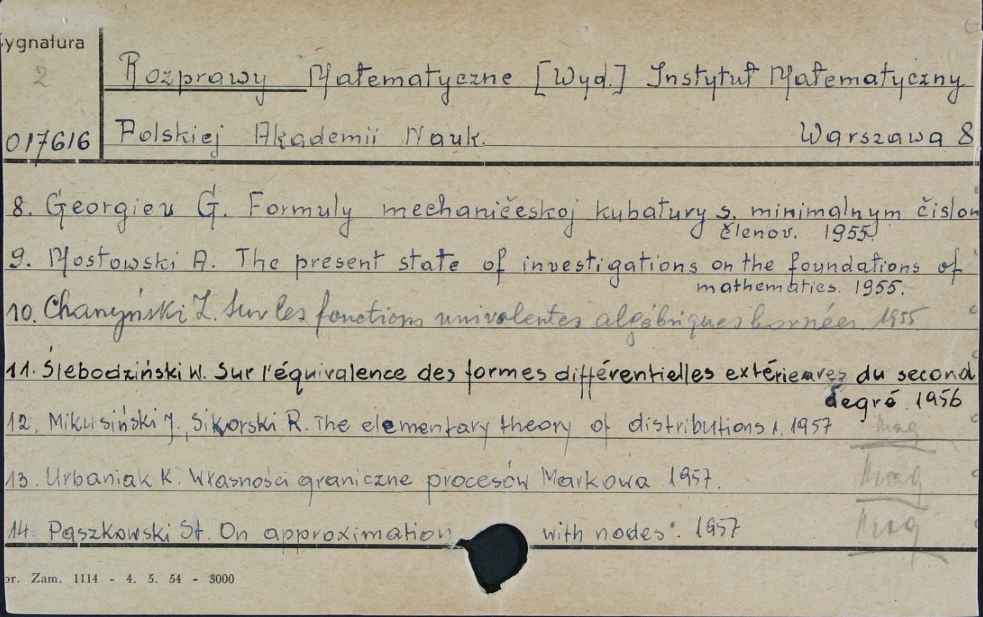 ygnatura
2
Rozprawy Matematyczne [Wyd.] Instytut Matematyczny
017616 Polskiej Akademii Nauk. Warszawa 8
8. Georgiev G. Formuly mechaničeskoj kubatury s. minimalnym čislom
členov. 1955.
9. Mostowski A. The present state of investigations on the foundations of
mathematics. 1955.
10. Charzyński Z. Sur les fonctions univalentes algébriques bornées 1955
11. Ślebodziński W. Sur l'équivalence des formes différentielles extérieures du second
degré 1956
12. Mikusiński J., Sikorski R. The elementary theory of distributions 1. 1957 Mag
13. Urbaniak K. Własności graniczne procesów Markowa 1957. Mag
14 Paszkowski St. On approximation with nodes". 1957 Mag
or. Zam. 1114 - 4. 5. 54 - 3000